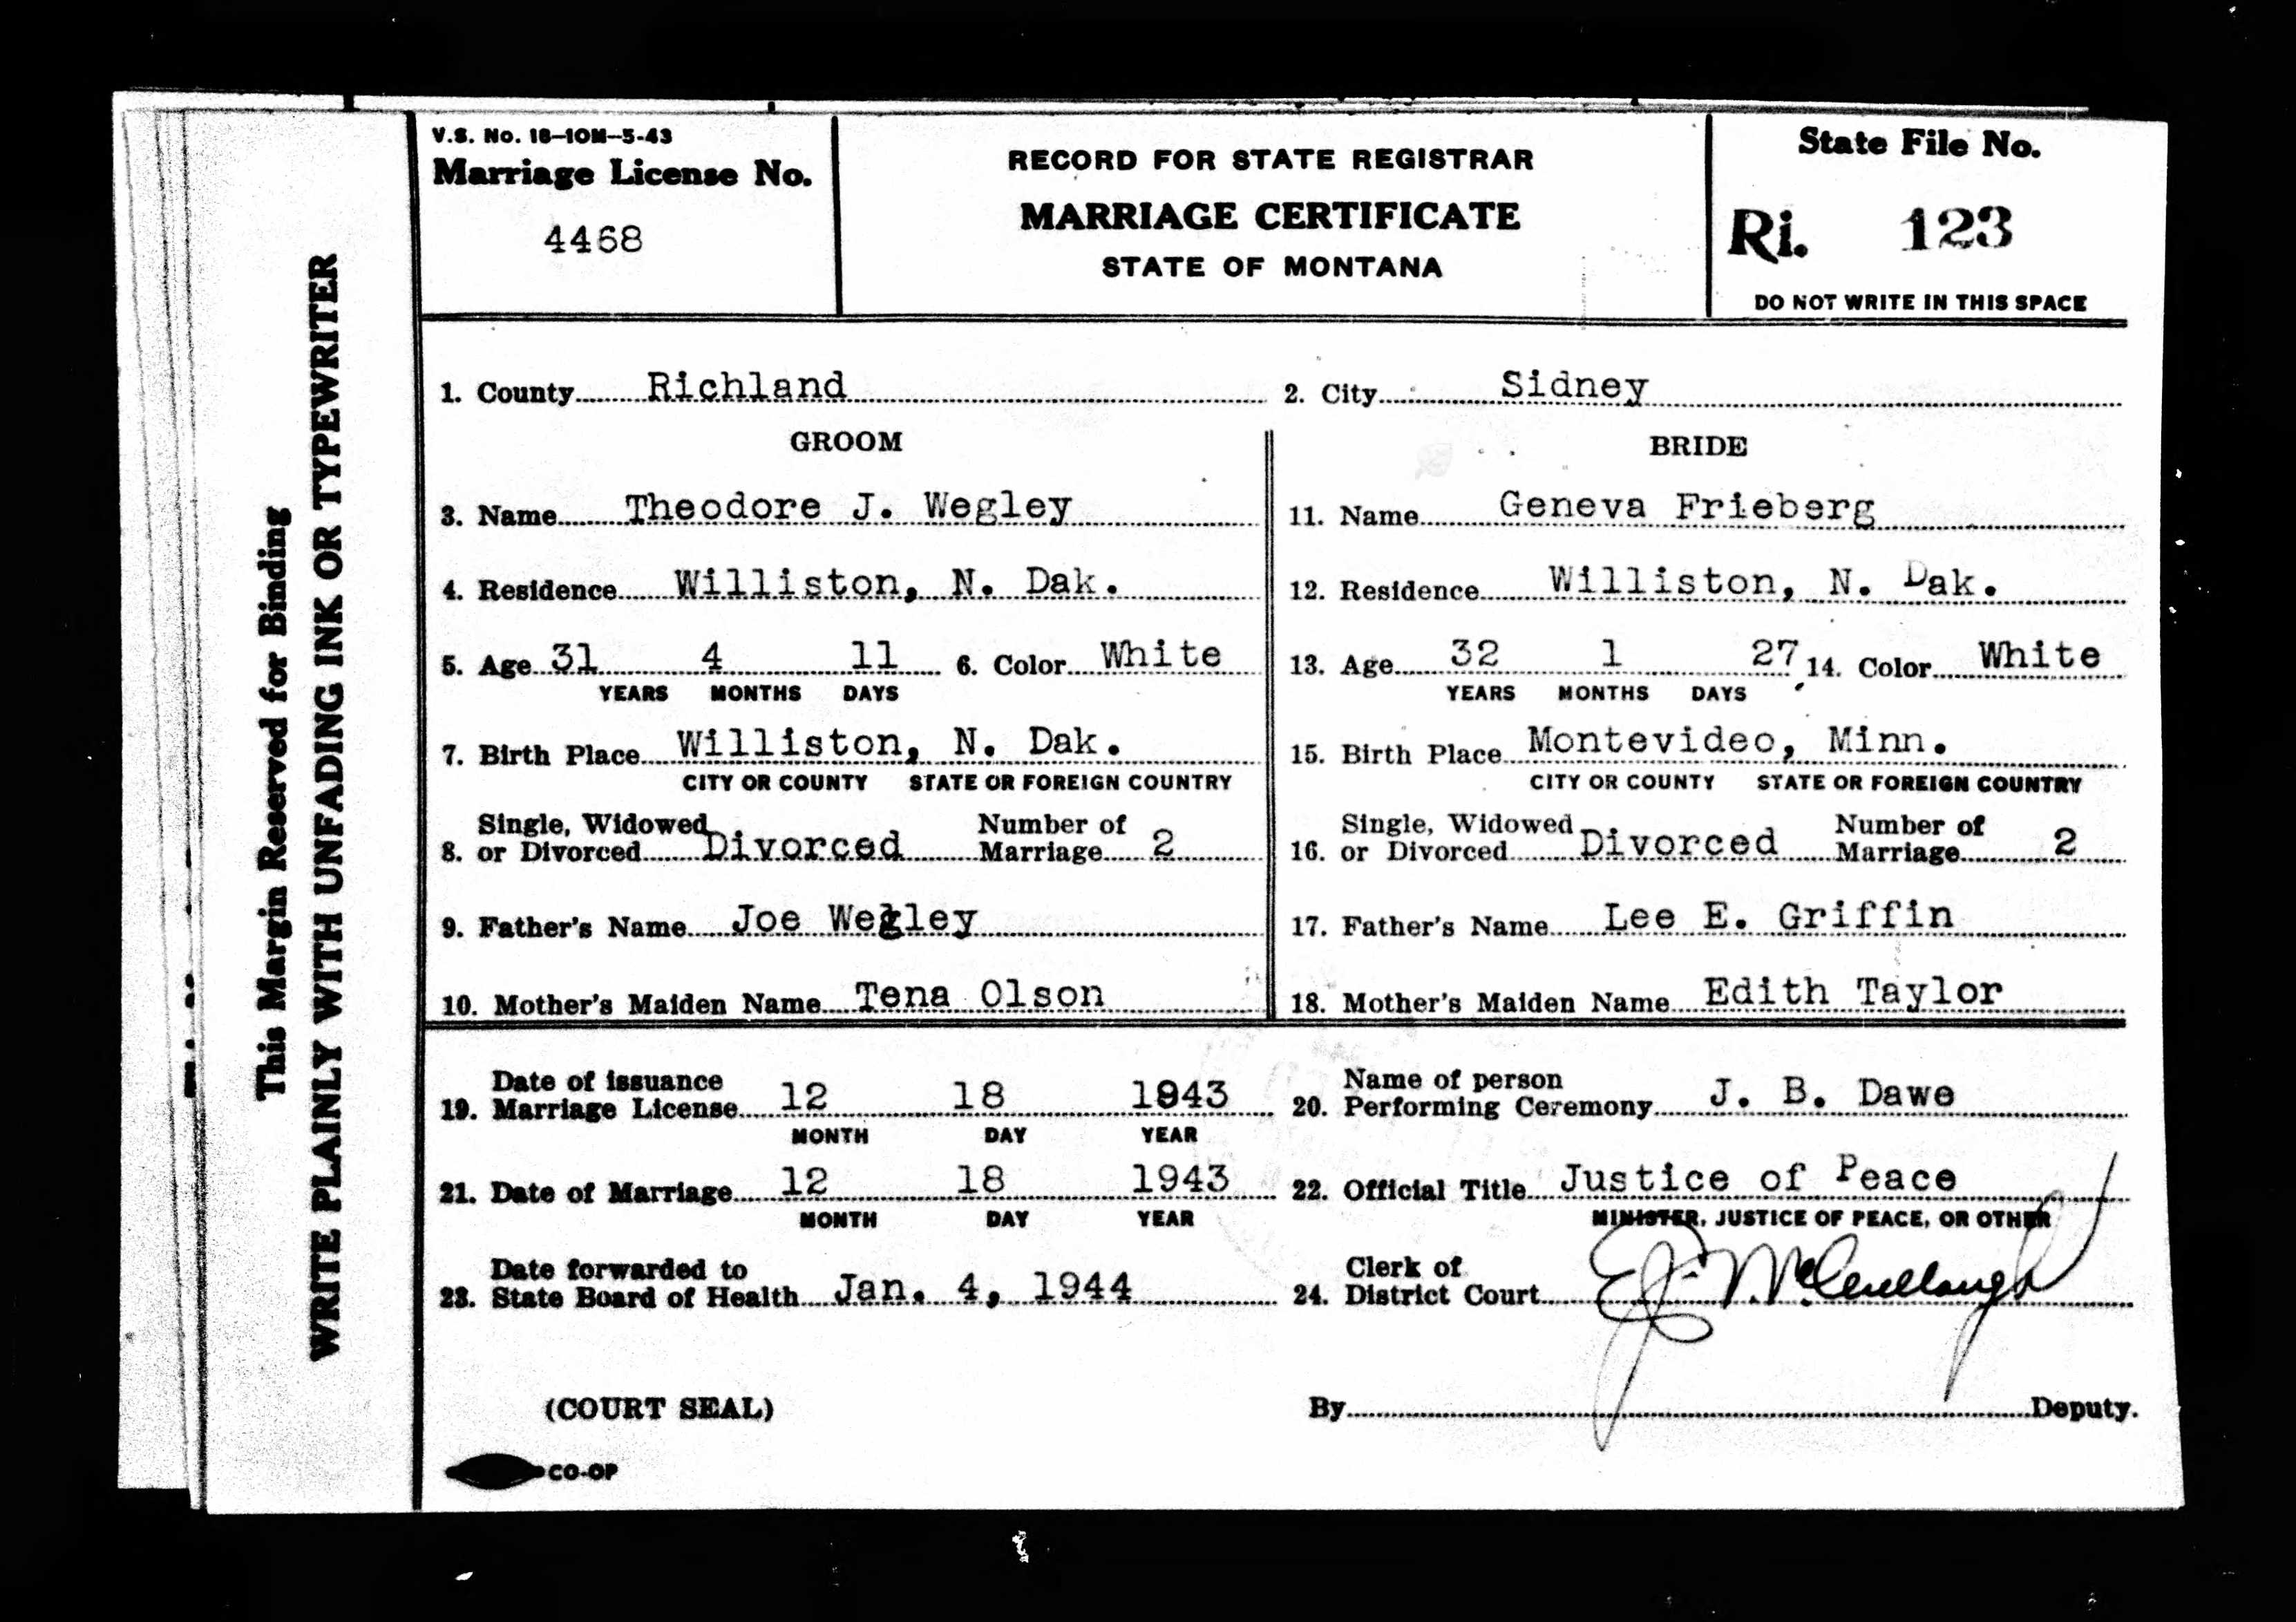 This Margin Reserved for Binding
WRITE PLAINLY WITH UNFADING INK OR TYPEWRITER
V.S. No. 18—10M—5-43
Marriage License No.
4468
RECORD FOR STATE REGISTRAR
MARRIAGE CERTIFICATE
STATE OF MONTANA
State File No.
Ri. 123
DO NOT WRITE IN THIS SPACE
1. County Richland 2. City Sidney
GROOM
3. Name Theodore J. Wegley
4. Residence Williston, N. Dak.
5. Age 31 4 11 6. Color White
YEARS MONTHS DAYS
7. Birth Place Williston, N. Dak.
CITY OR COUNTY STATE OR FOREIGN COUNTRY
Single, Widowed Number of
8. or Divorced Divorced Marriage 2
9. Father's Name Joe Wegley
10. Mother's Maiden Name Tena Olson
BRIDE
11. Name Geneva Frieberg
12. Residence Williston, N. Dak.
13. Age 32 1 27 14. Color White
YEARS MONTHS DAYS
15. Birth Place Montevideo, Minn.
CITY OR COUNTY STATE OR FOREIGN COUNTRY
Single, Widowed Number of
16. or Divorced Divorced Marriage 2
17. Father's Name Lee E. Griffin
18. Mother's Maiden Name Edith Taylor
Date of issuance
19. Marriage License 12 18 1943
MONTH DAY YEAR
Name of person
20. Performing Ceremony J. B. Dawe
21. Date of Marriage 12 18 1943
MONTH DAY YEAR
22. Official Title Justice of Peace
MINISTER, JUSTICE OF PEACE, OR OTHER
Date forwarded to
23. State Board of Health Jan. 4, 1944
Clerk of
24. District Court
(COURT SEAL)
By Deputy.
CO-OP